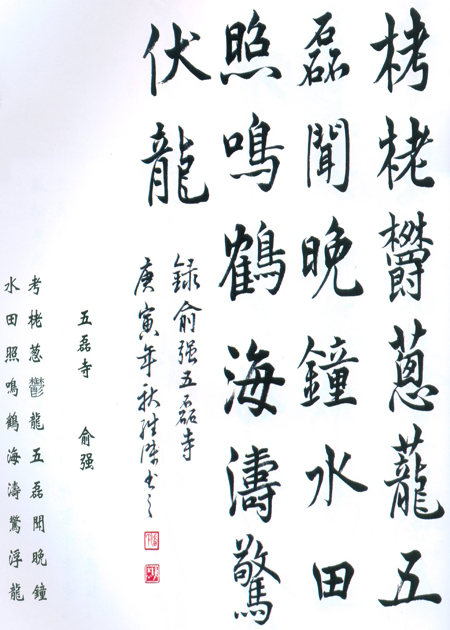 栲栳欝蔥蘢五
磊聞晚鐘水田
照鳴鶴海濤驚
伏龍
録俞强五磊寺
庚寅年秋书之
五磊寺 俞强
考栳葱鬱龍五磊聞晚鐘
水田照鳴鶴海濤驚浮龍